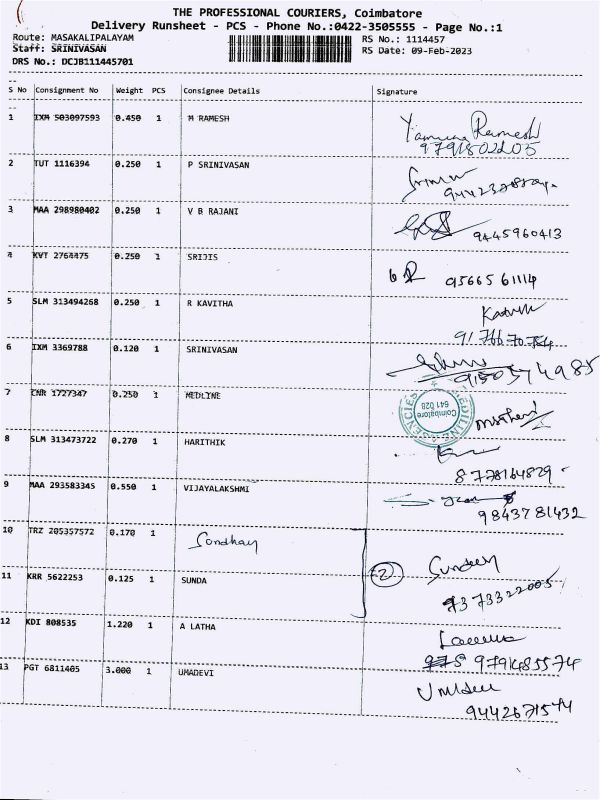 THE PROFESSIONAL COURIERS, Coimbatore
Delivery Runsheet - PCS - Phone No.:0422-3505555 - Page No.:1
Route: MASAKALIPALAYAM RS No.: 1114457
Staff: SRINIVASAN RS Date: 09-Feb-2023
DRS No.: DCJB111445701
S No Consignment No Weight PCS Consignee Details Signature
1 IXM 503097593 0.450 1 M RAMESH Yamuna Ramesh
9791802205
2 TUT 1116394 0.250 1 P SRINIVASAN
3 MAA 298980402 0.250 1 V B RAJANI 9445960413
4 KVT 2764475 0.250 1 SRIJIS 95665 61114
5 SLM 313494268 0.250 1 R KAVITHA
6 IXM 3369788 0.120 1 SRINIVASAN
9150574985
7 CNR 1727347 0.250 1 MEDLINE Coimbatore 641 028
8 SLM 313473722 0.270 1 HARITHIK
8778164829
9 MAA 293583345 0.550 1 VIJAYALAKSHMI
9843781432
10 TRZ 205357572 0.170 1
11 KRR 5622253 0.125 1 SUNDA 2
9373322005
12 KDI 808535 1.220 1 A LATHA
9791485574
13 PGT 6811405 3.000 1 UMADEVI
9442671574